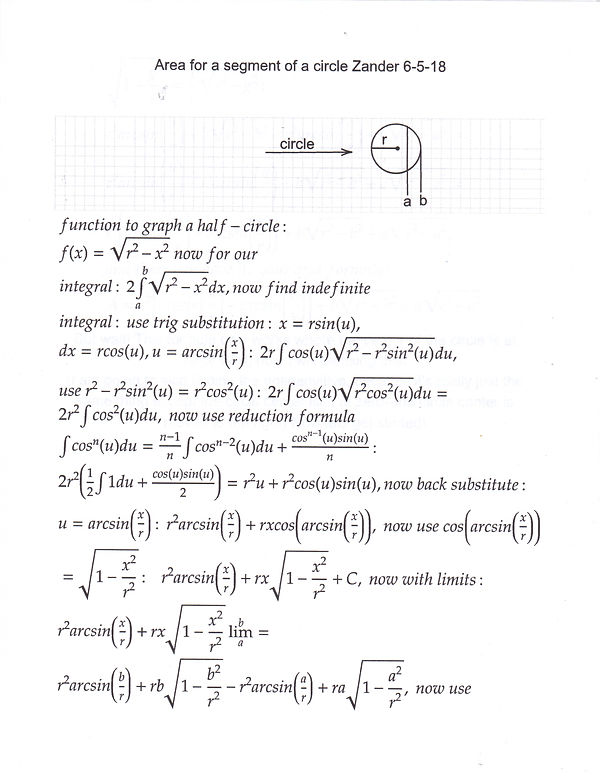 Area for a segment of a circle Zander 6-5-18
circle
r
a b
function to graph a half – circle :
f(x) = √(r² – x²) now for our
integral : 2∫ₐᵇ√(r² – x²)dx, now find indefinite
integral : use trig substitution : x = rsin(u),
dx = rcos(u), u = arcsin(x/r) : 2r∫cos(u)√(r² – r²sin²(u))du,
use r² – r²sin²(u) = r²cos²(u) : 2r∫cos(u)√(r²cos²(u))du =
2r²∫cos²(u)du, now use reduction formula
∫cosⁿ(u)du = (n–1)/n ∫cosⁿ⁻²(u)du + (cosⁿ⁻¹(u)sin(u))/n :
2r²(1/2 ∫1du + (cos(u)sin(u))/2) = r²u + r²cos(u)sin(u), now back substitute :
u = arcsin(x/r) : r²arcsin(x/r) + rxcos(arcsin(x/r)), now use cos(arcsin(x/r))
= √(1 – x²/r²) : r²arcsin(x/r) + rx√(1 – x²/r²) + C, now with limits :
r²arcsin(x/r) + rx√(1 – x²/r²) lim b a =
r²arcsin(b/r) + rb√(1 – b²/r²) – r²arcsin(a/r) + ra√(1 – a²/r²), now use